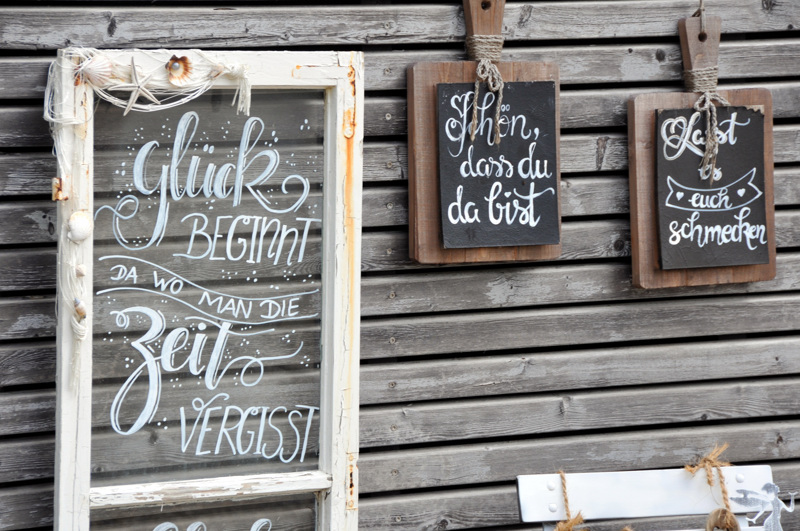 Glück
BEGINNT
DA WO MAN DIE
Zeit
VERGISST
Schön,
dass du
da bist
Lasst
es
euch
schmecken